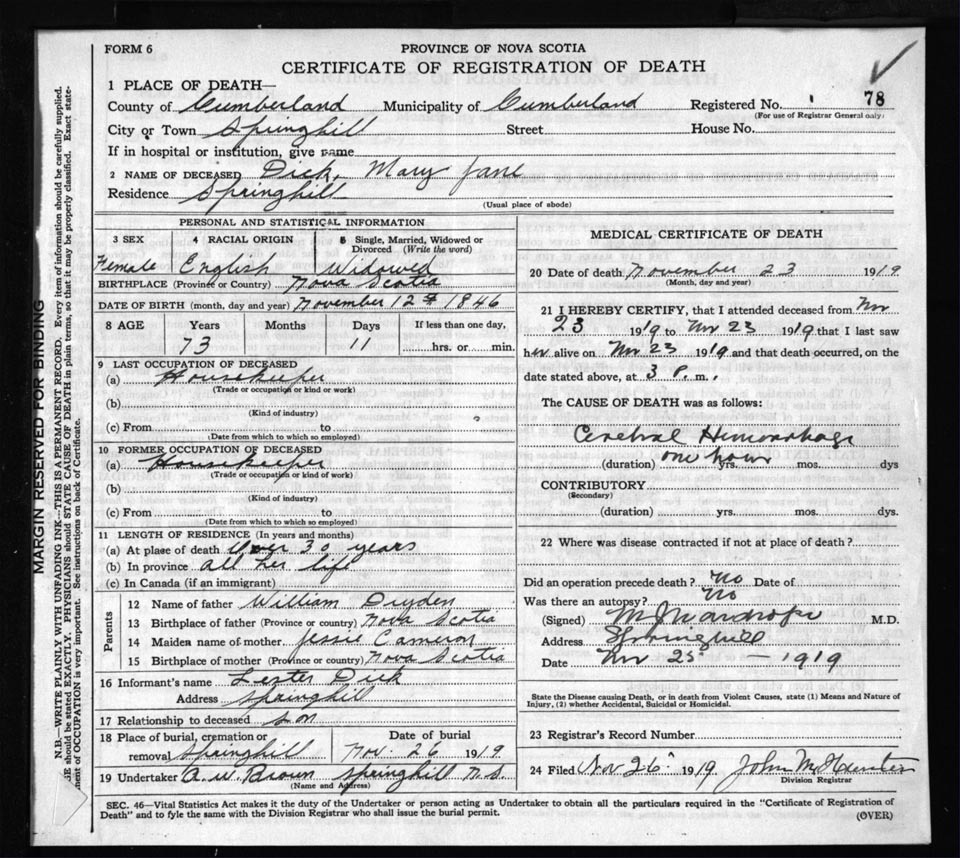 FORM 6
PROVINCE OF NOVA SCOTIA
CERTIFICATE OF REGISTRATION OF DEATH
1 PLACE OF DEATH—
County of Cumberland Municipality of Cumberland Registered No. 78
(For use of Registrar General only)
City or Town Springhill Street House No.
If in hospital or institution, give name
2 NAME OF DECEASED Dick, Mary Jane
Residence Springhill
(Usual place of abode)
PERSONAL AND STATISTICAL INFORMATION
3 SEX 4 RACIAL ORIGIN 5 Single, Married, Widowed or
Divorced (Write the word)
Female English Widowed
BIRTHPLACE (Province or Country) Nova Scotia
DATE OF BIRTH (month, day and year) November 12th 1846
8 AGE Years Months Days If less than one day,
73 11 hrs. or min.
9 LAST OCCUPATION OF DECEASED
(a) Housekeeper
(Trade or occupation or kind of work)
(b)
(Kind of industry)
(c) From to
(Date from which to which so employed)
10 FORMER OCCUPATION OF DECEASED
(a) Housekeeper
(Trade or occupation or kind of work)
(b)
(Kind of industry)
(c) From to
(Date from which to which so employed)
11 LENGTH OF RESIDENCE (In years and months)
(a) At place of death Over 30 years
(b) In province all her life
(c) In Canada (if an immigrant)
Parents
12 Name of father William Dryden
13 Birthplace of father (Province or country) Nova Scotia
14 Maiden name of mother Jessie Cameron
15 Birthplace of mother (Province or country) Nova Scotia
16 Informant's name Lester Dick
Address Springhill
17 Relationship to deceased son
18 Place of burial, cremation or Date of burial
removal Springhill Nov. 26 1919.
19 Undertaker A. W. Brown Springhill N.S.
(Name and Address)
MEDICAL CERTIFICATE OF DEATH
20 Date of death November 23 1919
(Month, day and year)
21 I HEREBY CERTIFY, that I attended deceased from Nov
23 1919 to Nov 23 1919 that I last saw
her alive on Nov 23 1919 and that death occurred, on the
date stated above, at 3 P. m.
The CAUSE OF DEATH was as follows:
Cerebral Hemorrhage
(duration) one hour yrs. mos. dys
CONTRIBUTORY
(Secondary)
(duration) yrs. mos. dys.
22 Where was disease contracted if not at place of death?
Did an operation precede death? No Date of
Was there an autopsy? No
(Signed) M.D.
Address Springhill
Date Nov 25 — 1919
State the Disease causing Death, or in death from Violent Causes, state (1) Means and Nature of
Injury, (2) whether Accidental, Suicidal or Homicidal.
23 Registrar's Record Number
24 Filed Nov 26 1919 John
Division Registrar
SEC. 46—Vital Statistics Act makes it the duty of the Undertaker or person acting as Undertaker to obtain all the particulars required in the "Certificate of Registration of
Death" and to fyle the same with the Division Registrar who shall issue the burial permit.
(OVER)
MARGIN RESERVED FOR BINDING
N.B.—WRITE PLAINLY WITH UNFADING INK—THIS IS A PERMANENT RECORD. Every item of information should be carefully supplied.
should be stated EXACTLY. PHYSICIANS should STATE CAUSE OF DEATH in plain terms, so that it may be properly classified. Exact state-
ment of OCCUPATION is very important. See instructions on back of Certificate.